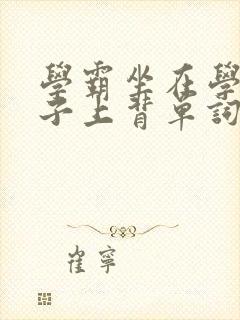 學霸坐在學
子上背單詞
崔寧